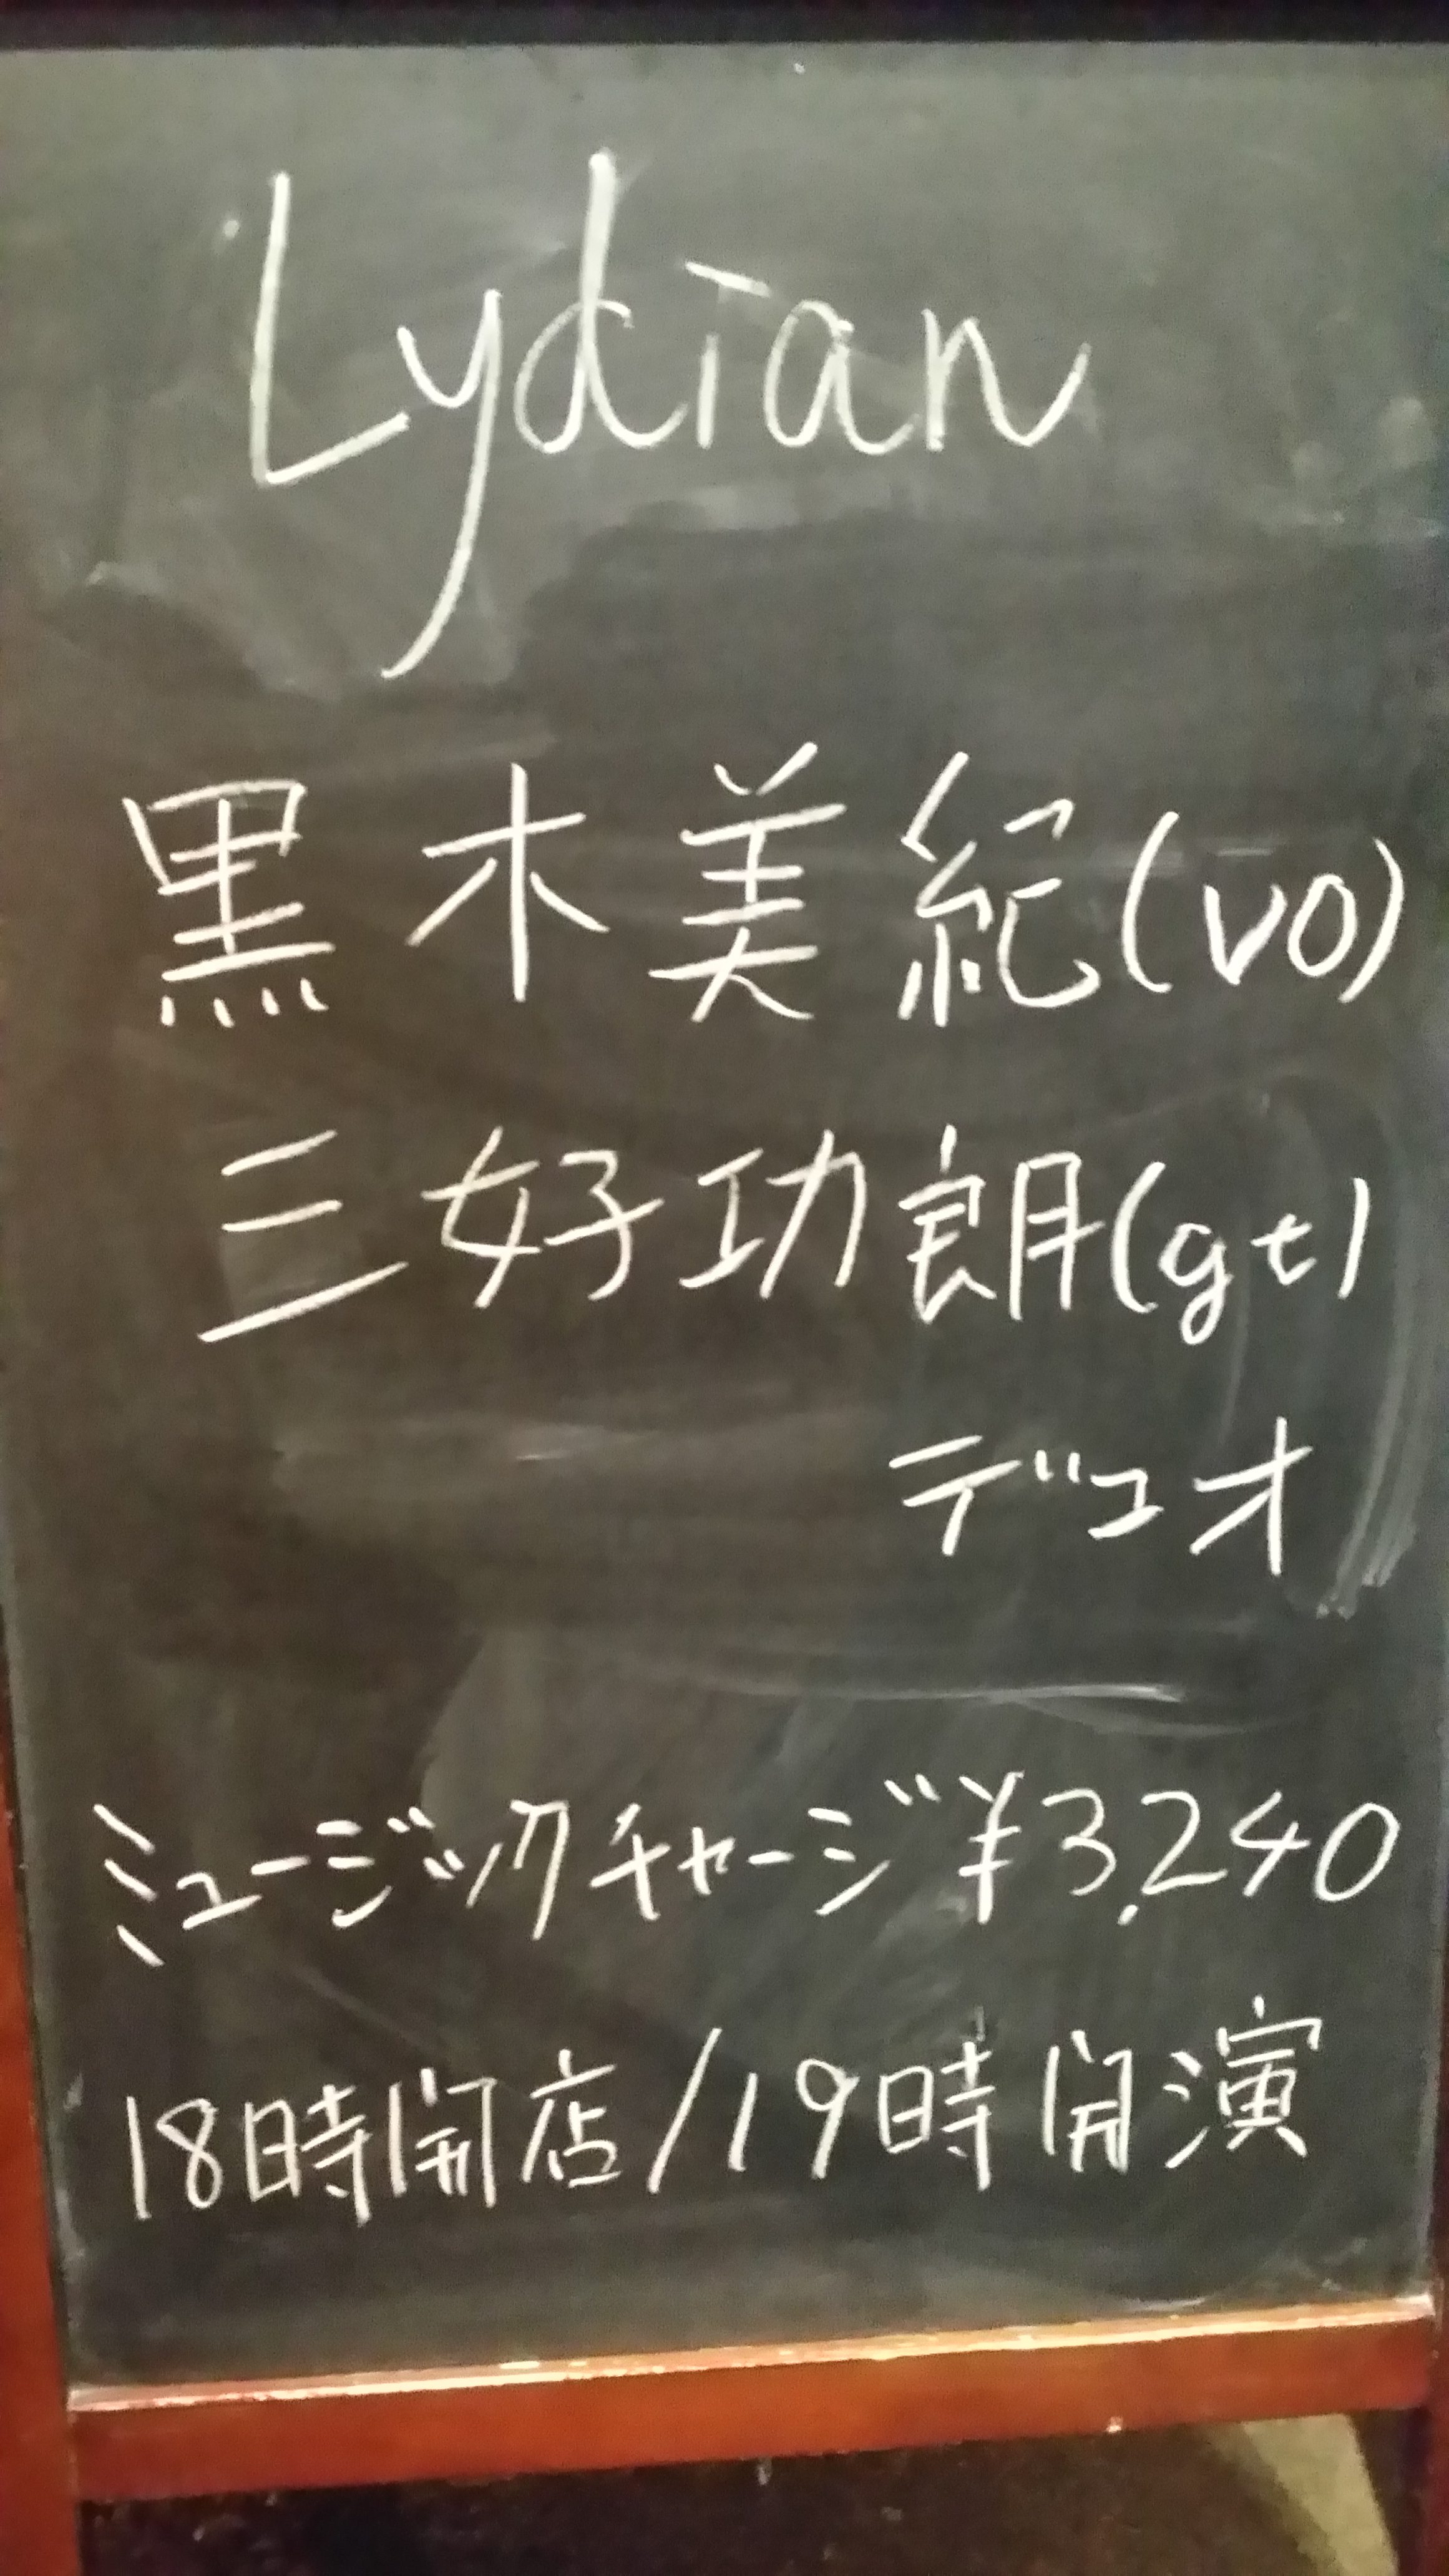 Lydian
黒木美紀(vo)
三好功郎(gt)
デュオ
ミュージックチャージ¥3,240
18時開店/19時開演